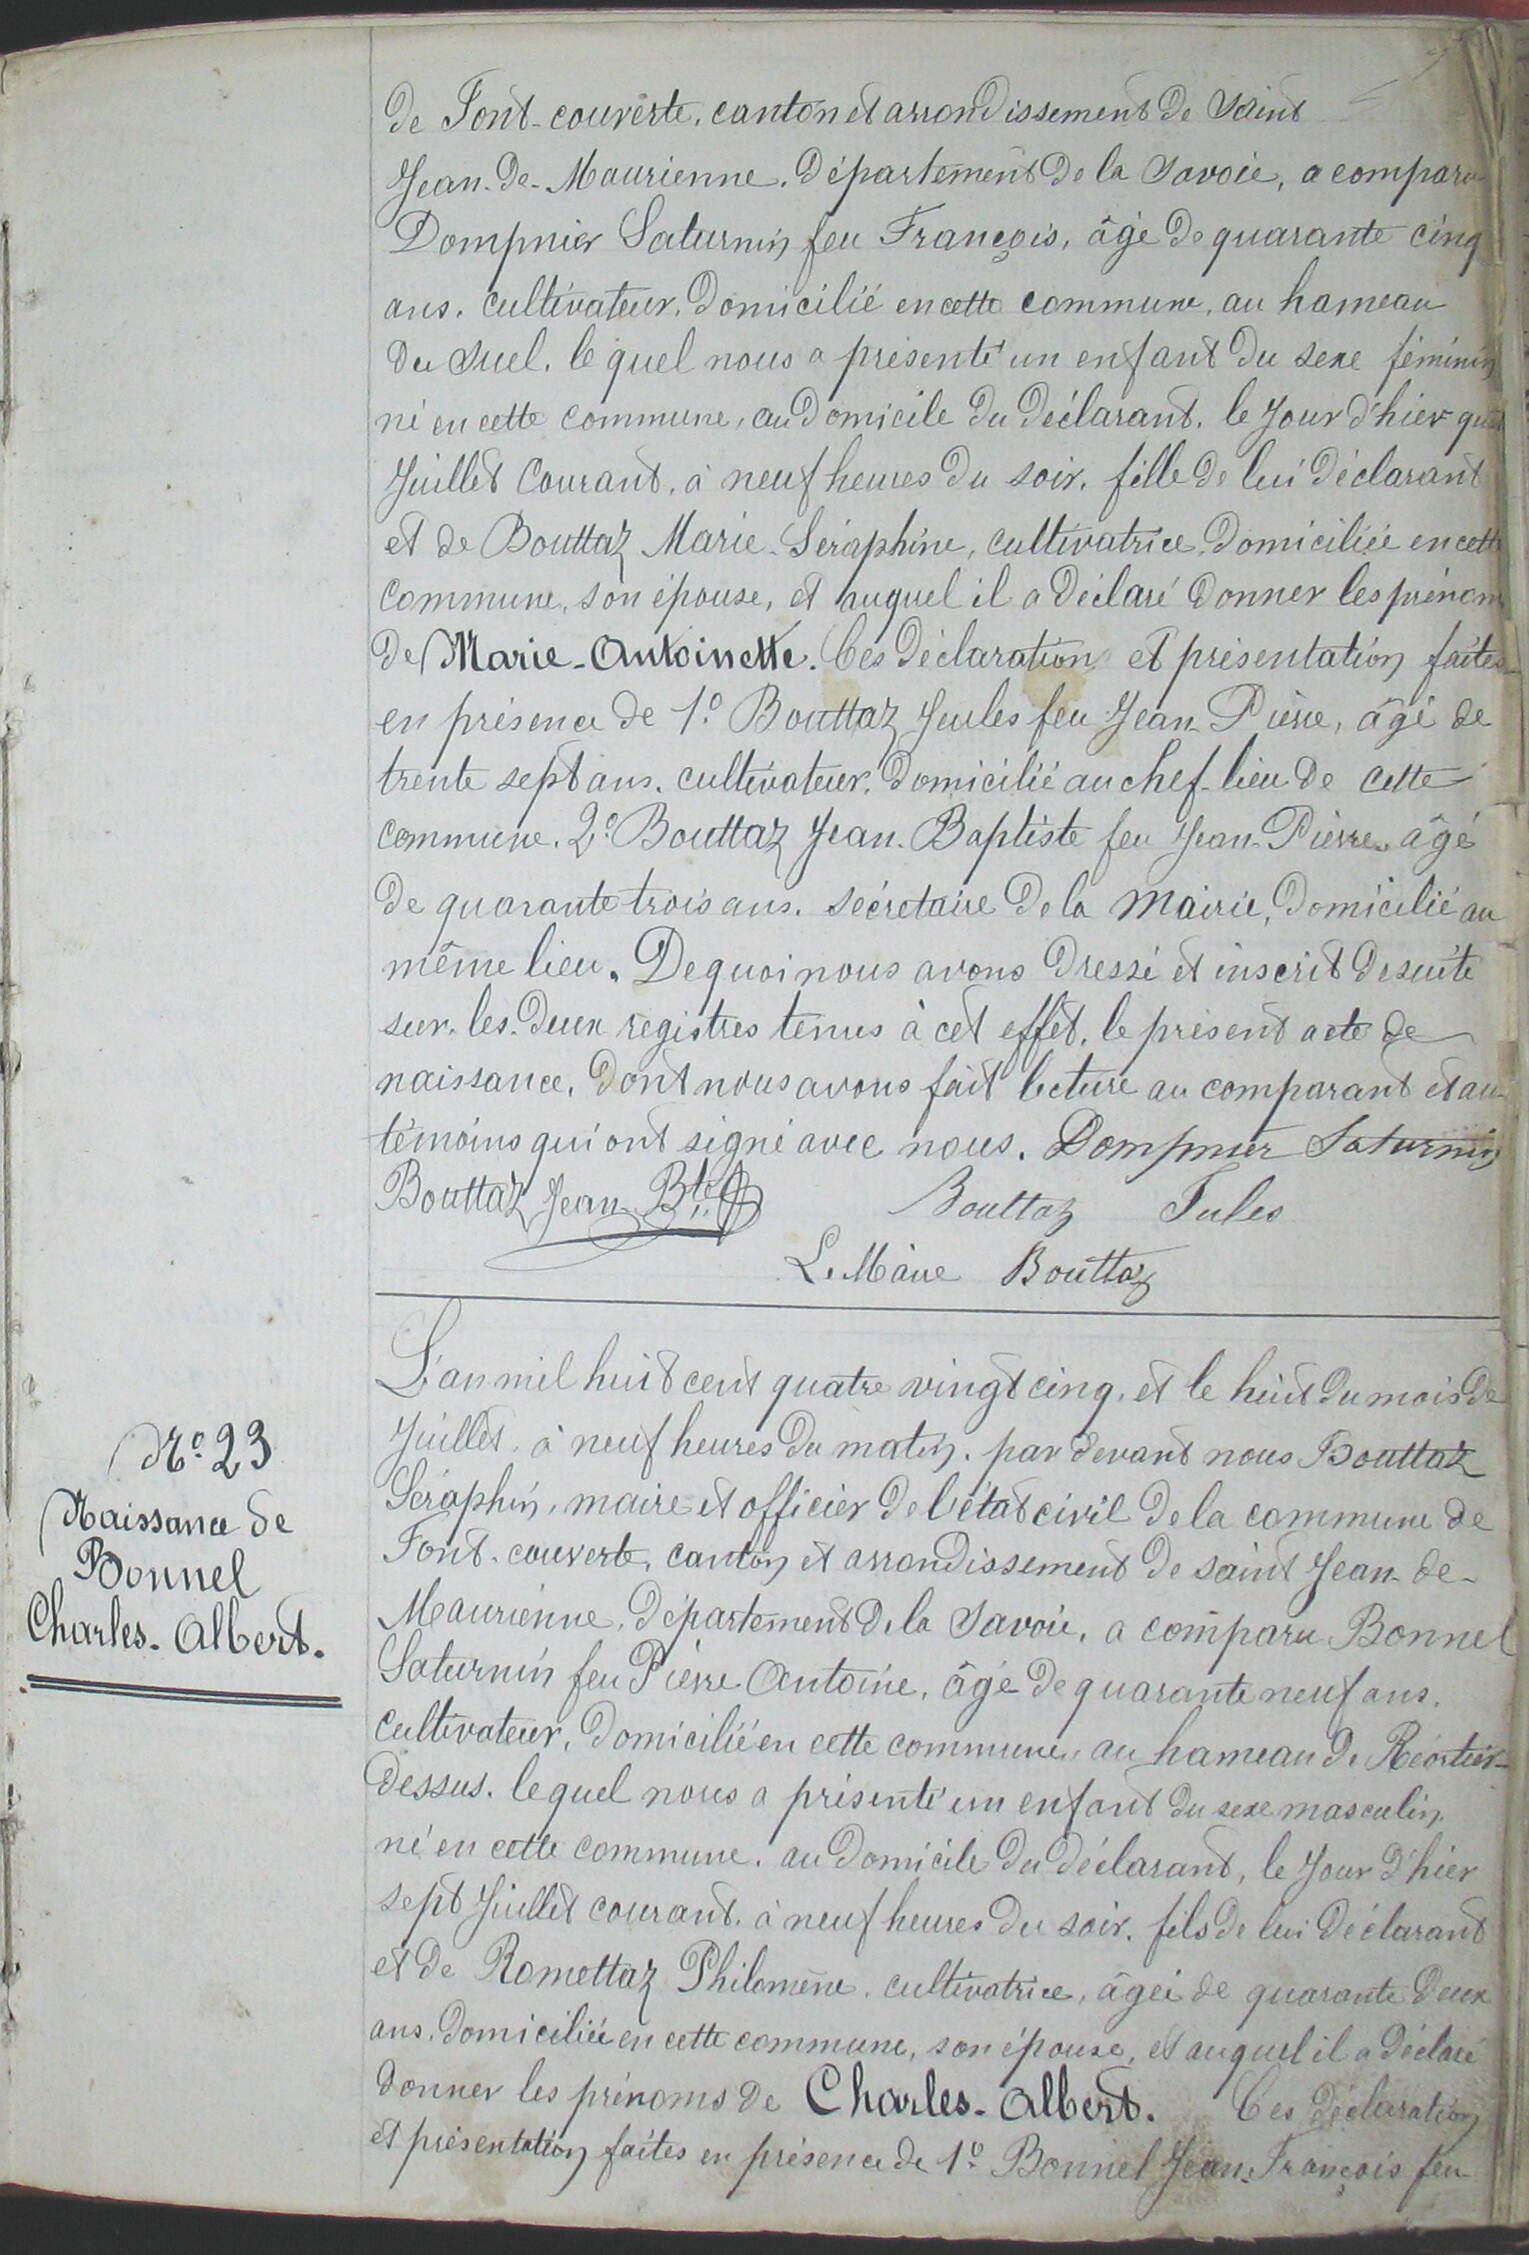 de Font-couverte, canton et arrondissement de Saint
Jean-de-Maurienne, département de la Savoie, a comparu
Dompnier Saturnin feu François, âgé de quarante cinq
ans, cultivateur, domicilié en cette commune, au hameau
du Suel, lequel nous a présenté un enfant du sexe féminin
né en cette commune, au domicile du déclarant, le jour d'hier
Juillet courant, à neuf heures du soir, fille de lui déclarant
et de Bouttaz Marie-Séraphine, cultivatrice, domiciliée en cette
commune, son épouse, et auquel il a déclaré donner les prénoms
de Marie-Antoinette. Ces déclaration et présentation faites
en présence de 1° Bouttaz Jules feu Jean-Pierre, âgé de
trente sept ans, cultivateur, domicilié au chef-lieu de cette
commune, 2° Bouttaz Jean-Baptiste feu Jean-Pierre, âgé
de quarante trois ans, sécretaire de la Mairie, domicilié au
même lieu. De quoi nous avons dressé et inscrit de suite
sur les deux registres tenus à cet effet, le présent acte de
naissance, dont nous avons fait lecture au comparant et au
témoins qui ont signé avec nous. Dompnier Saturnin
Bouttaz Jean Bte Bouttaz Jules
Le Maire Bouttaz
L'an mil huit cent quatre vingt cinq, et le huit du mois de
Juillet, à neuf heures du matin, par devant nous Bouttaz
Séraphin, maire et officier de l'état civil de la commune de
Font-couverte, canton et arrondissement de saint Jean-de-
Maurienne, département de la Savoie, a comparu Bonnel
Saturnin feu Pierre Antoine, âgé de quarante neuf ans,
cultivateur, domicilié en cette commune, au hameau de Réortier-
dessus, lequel nous a présenté un enfant du sexe masculin,
né en cette commune, au domicile du déclarant, le jour d'hier
sept Juillet courant, à neuf heures du soir, fils de lui déclarant
et de Romettaz Philomène, cultivatrice, âgée de quarante deux
ans, domiciliée en cette commune, son épouse, et auquel il a déclaré
donner les prénoms de Charles-Albert. Ces déclaration
et présentation faites en présence de 1° Bonnel Jean-François feu
N° 23
Naissance de
Bonnel
Charles-Albert.